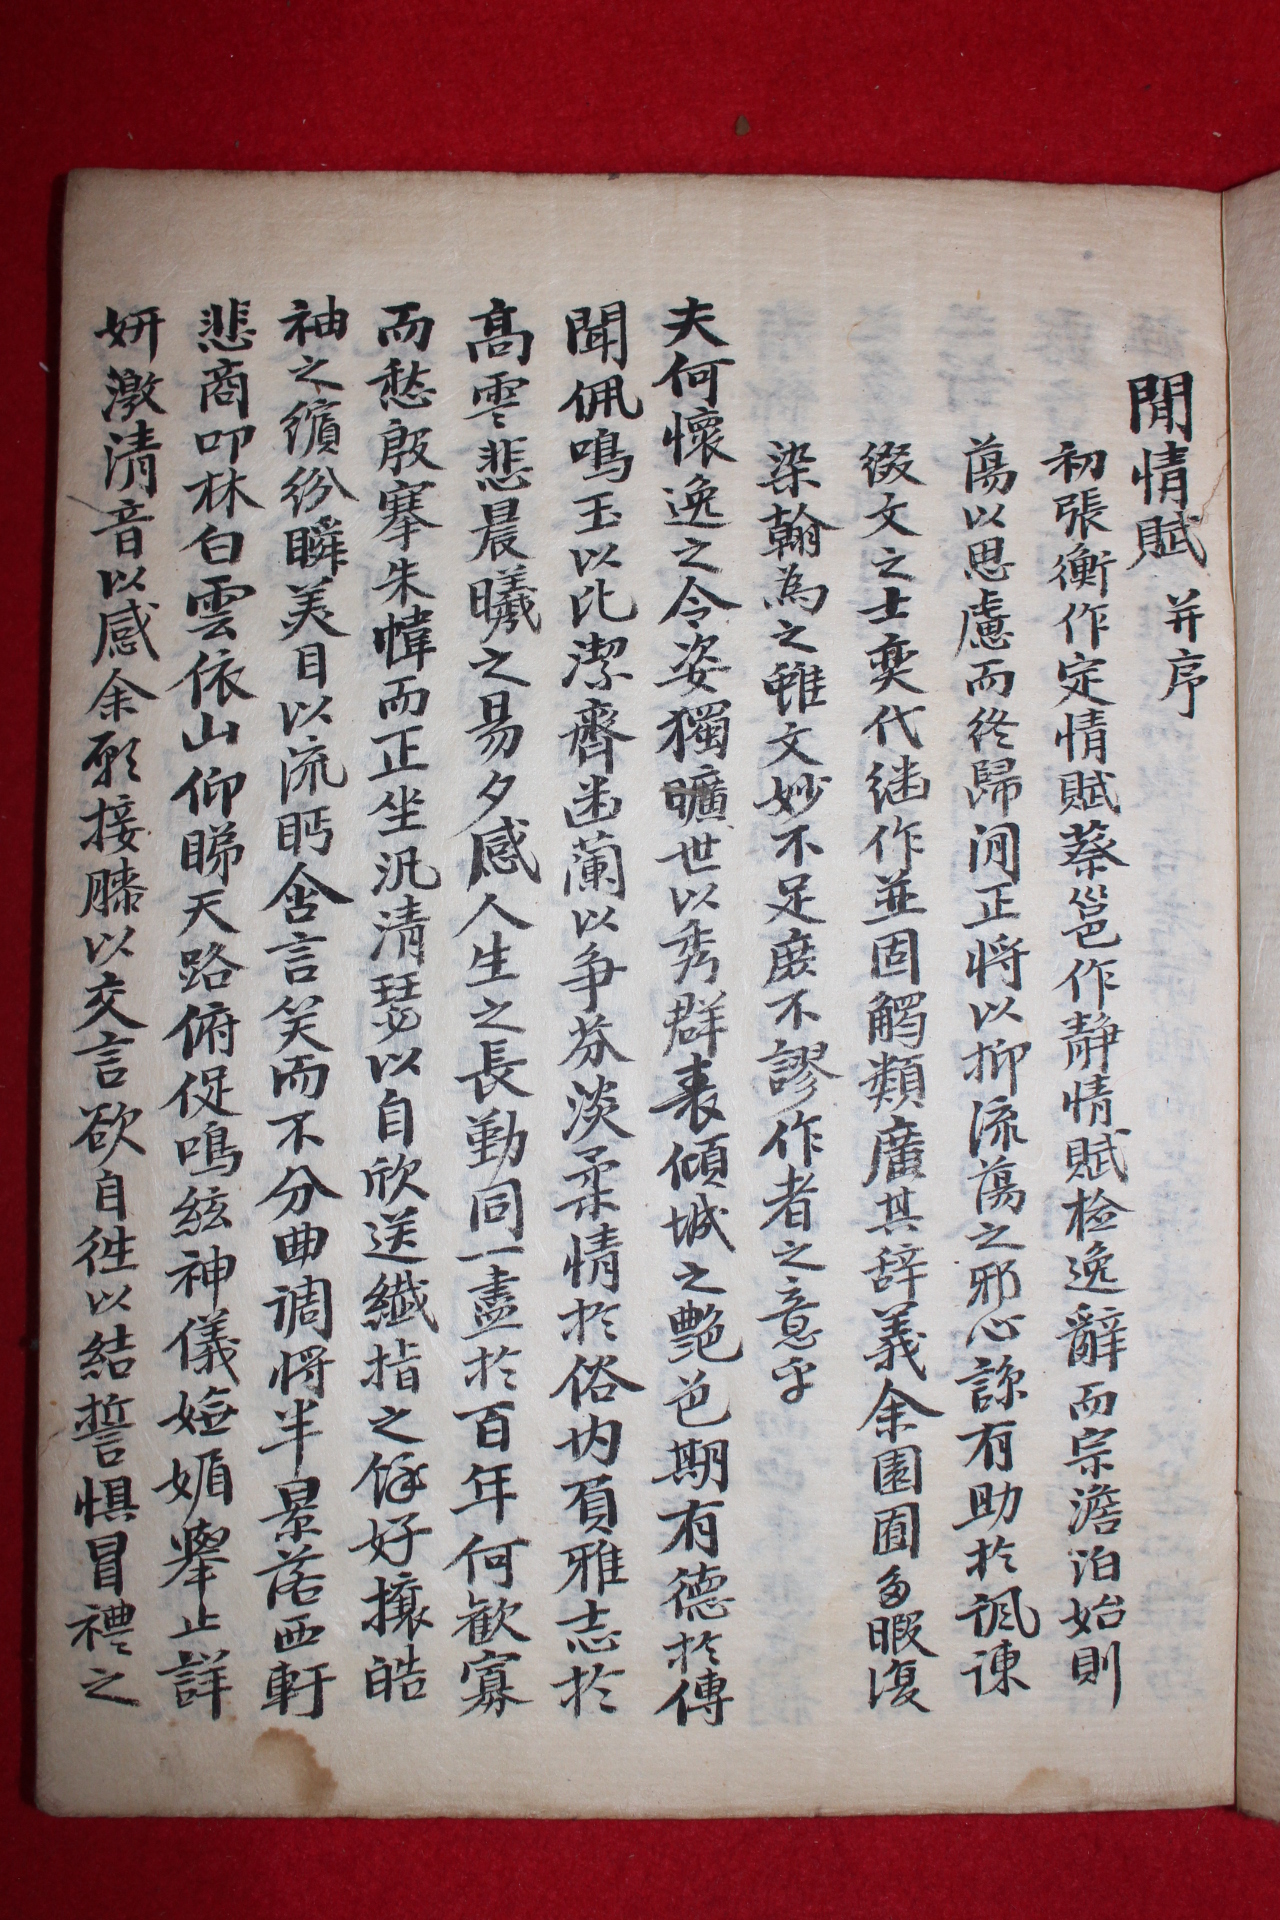 閒情賦 并序
初張衡作定情賦蔡邕作靜情賦檢逸辭而宗澹泊始則
蕩以思慮而終歸閑正將以抑流蕩之邪心諒有助於諷諫
綴文之士奕代継作並固觸類廣其辞義余園閭多暇復
染翰為之雖文妙不足庶不謬作者之意乎
夫何懷逸之令姿獨曠世以秀群表傾城之艶色期有德於傳
聞佩鳴玉以比潔齊幽蘭以争芬淡柔情於俗内負雅志於
高雲悲晨曦之易夕感人生之長勤同一盡於百年何歡寡
而愁殷搴朱幃而正坐汎清瑟以自欣送纖指之餘好攘皓
袖之繽紛瞬美目以流眄含言笑而不分曲调将半景落西軒
悲商叩林白雲依山仰睇天路俯促鳴絃神儀嫵媚舉止詳
妍激清音以感余願接膝以交言欲自徃以結誓惧冒禮之